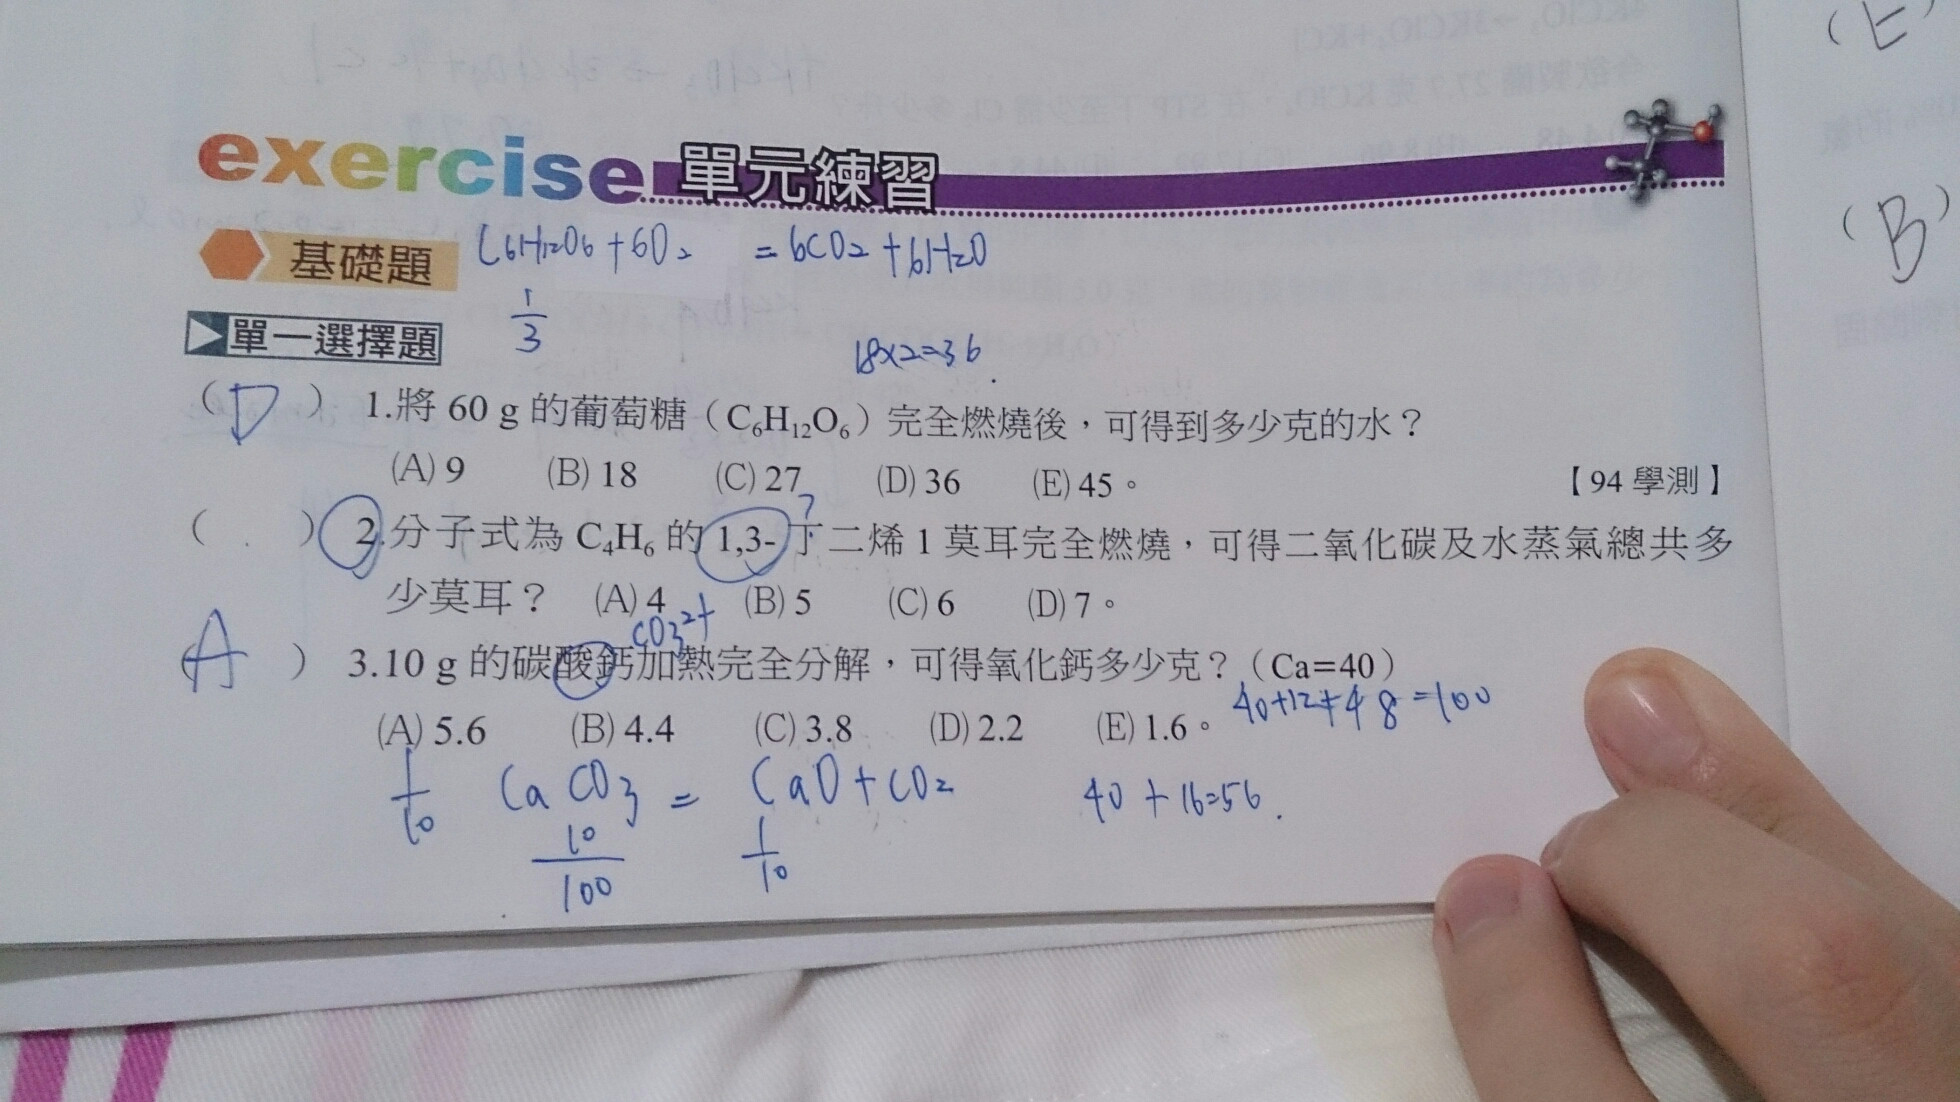 exercise 單元練習
基礎題 C6H12O6 + 6O2 = 6CO2 + 6H2O
1/3
單一選擇題 18×2=36.
(D) 1.將 60 g 的葡萄糖（C6H12O6）完全燃燒後，可得到多少克的水？
(A) 9 (B) 18 (C) 27 (D) 36 (E) 45。 【94 學測】
?
( ) 2.分子式為 C4H6 的 1,3-丁二烯 1 莫耳完全燃燒，可得二氧化碳及水蒸氣總共多
少莫耳？ (A) 4 (B) 5 (C) 6 (D) 7。
CO3 2+
(A) 3.10 g 的碳酸鈣加熱完全分解，可得氧化鈣多少克？（Ca=40）
40+12+48=100
(A) 5.6 (B) 4.4 (C) 3.8 (D) 2.2 (E) 1.6。
1/10 CaCO3 = CaO + CO2 40+16=56.
10/100 1/10
(E)
(B)